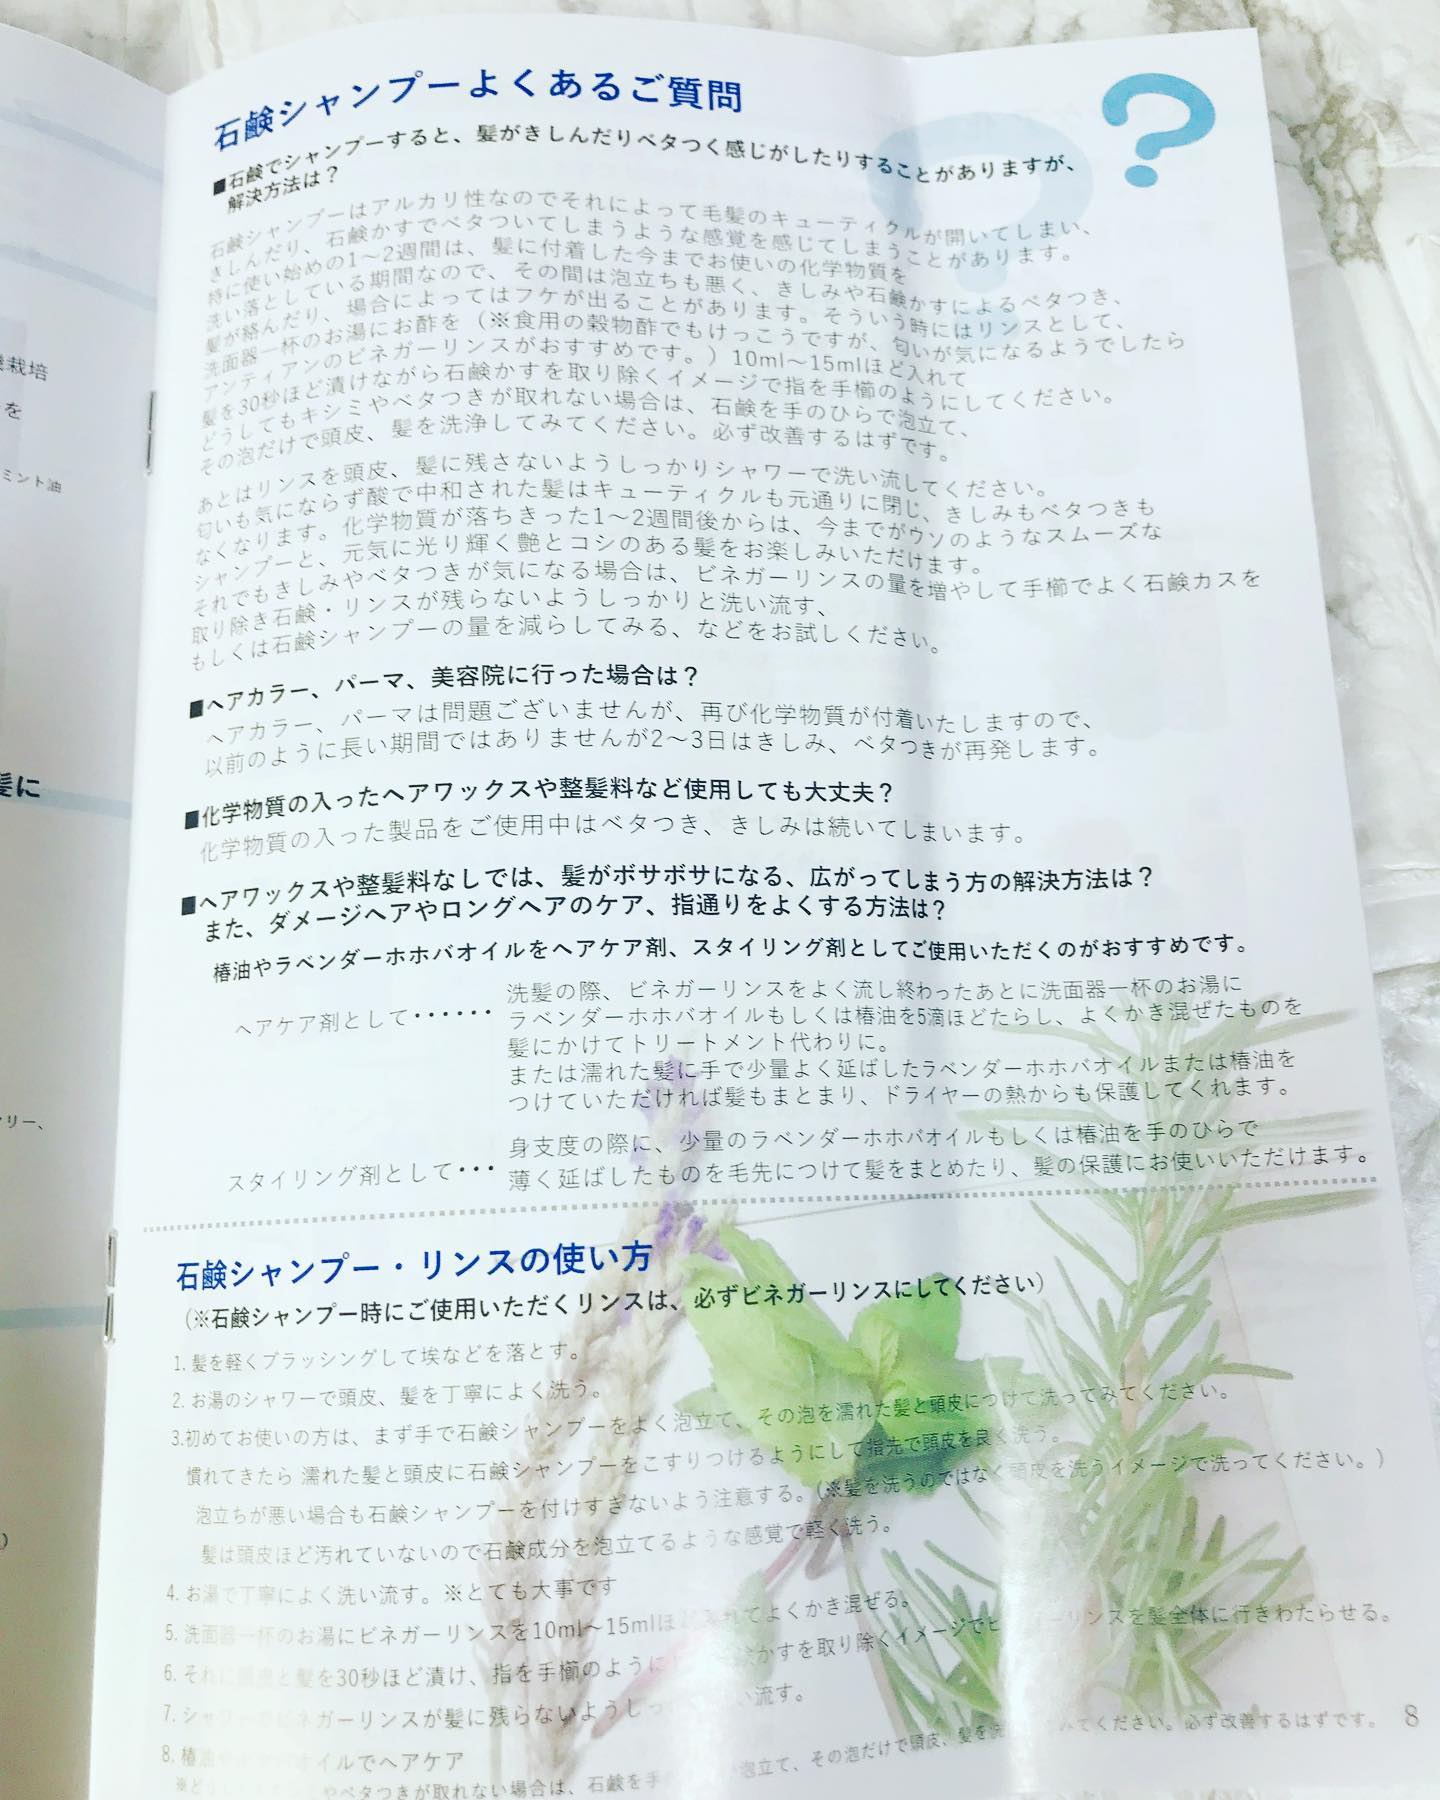 栽培
を
ミント油
髪に
リー、
石鹸シャンプーよくあるご質問
■石鹸でシャンプーすると、髪がきしんだりベタつく感じがしたりすることがありますが、
解決方法は？
石鹸シャンプーはアルカリ性なのでそれによって毛髪のキューティクルが開いてしまい、
きしんだり、石鹸かすでベタついてしまうような感覚を感じてしまうことがあります。
特に使い始めの1～2週間は、髪に付着した今までお使いの化学物質を
洗い落としている期間なので、その間は泡立ちも悪く、きしみや石鹸かすによるベタつき、
髪が絡んだり、場合によってはフケが出ることがあります。そういう時にはリンスとして、
洗面器一杯のお湯にお酢を（※食用の穀物酢でもけっこうですが、匂いが気になるようでしたら
アンティアンのビネガーリンスがおすすめです。）10ml～15mlほど入れて
髪を30秒ほど漬けながら石鹸かすを取り除くイメージで指を手櫛のようにしてください。
どうしてもキシミやベタつきが取れない場合は、石鹸を手のひらで泡立て、
その泡だけで頭皮、髪を洗浄してみてください。必ず改善するはずです。
あとはリンスを頭皮、髪に残さないようしっかりシャワーで洗い流してください。
匂いも気にならず酸で中和された髪はキューティクルも元通りに閉じ、きしみもベタつきも
なくなります。化学物質が落ちきった1～2週間後からは、今までがウソのようなスムーズな
シャンプーと、元気に光り輝く艶とコシのある髪をお楽しみいただけます。
それでもきしみやベタつきが気になる場合は、ビネガーリンスの量を増やして手櫛でよく石鹸カスを
取り除き石鹸・リンスが残らないようしっかりと洗い流す、
もしくは石鹸シャンプーの量を減らしてみる、などをお試しください。
■ヘアカラー、パーマ、美容院に行った場合は？
ヘアカラー、パーマは問題ございませんが、再び化学物質が付着いたしますので、
以前のように長い期間ではありませんが2～3日はきしみ、ベタつきが再発します。
■化学物質の入ったヘアワックスや整髪料など使用しても大丈夫？
化学物質の入った製品をご使用中はベタつき、きしみは続いてしまいます。
■ヘアワックスや整髪料なしでは、髪がボサボサになる、広がってしまう方の解決方法は？
また、ダメージヘアやロングヘアのケア、指通りをよくする方法は？
椿油やラベンダーホホバオイルをヘアケア剤、スタイリング剤としてご使用いただくのがおすすめです。
ヘアケア剤として・・・・・・ 洗髪の際、ビネガーリンスをよく流し終わったあとに洗面器一杯のお湯に
ラベンダーホホバオイルもしくは椿油を5滴ほどたらし、よくかき混ぜたものを
髪にかけてトリートメント代わりに。
または濡れた髪に手で少量よく延ばしたラベンダーホホバオイルまたは椿油を
つけていただければ髪もまとまり、ドライヤーの熱からも保護してくれます。
スタイリング剤として・・・ 身支度の際に、少量のラベンダーホホバオイルもしくは椿油を手のひらで
薄く延ばしたものを毛先につけて髪をまとめたり、髪の保護にお使いいただけます。
石鹸シャンプー・リンスの使い方
（※石鹸シャンプー時にご使用いただくリンスは、必ずビネガーリンスにしてください）
1. 髪を軽くブラッシングして埃などを落とす。
2. お湯のシャワーで頭皮、髪を丁寧によく洗う。
3.初めてお使いの方は、まず手で石鹸シャンプーをよく泡立て、その泡を濡れた髪と頭皮につけて洗ってみてください。
慣れてきたら 濡れた髪と頭皮に石鹸シャンプーをこすりつけるようにして指先で頭皮を良く洗う。
泡立ちが悪い場合も石鹸シャンプーを付けすぎないよう注意する。（※髪を洗うのではなく頭皮を洗うイメージで洗ってください。）
髪は頭皮ほど汚れていないので石鹸成分を泡立てるような感覚で軽く洗う。
4. お湯で丁寧によく洗い流す。※とても大事です
5. 洗面器一杯のお湯にビネガーリンスを10ml～15mlほど入れてよくかき混ぜる。
6. それに頭皮と髪を30秒ほど漬け、指を手櫛のように かすを取り除くイメージでビネガーリンスを髪全体に行きわたらせる。
7. シャワーでビネガーリンスが髪に残らないようしっ 流す。
8. 椿油 オイルでヘアケア
※ど やベタつきが取れない場合は、石鹸を手 泡立て、その泡だけで頭皮、髪を洗 みてください。必ず改善するはずです。
8